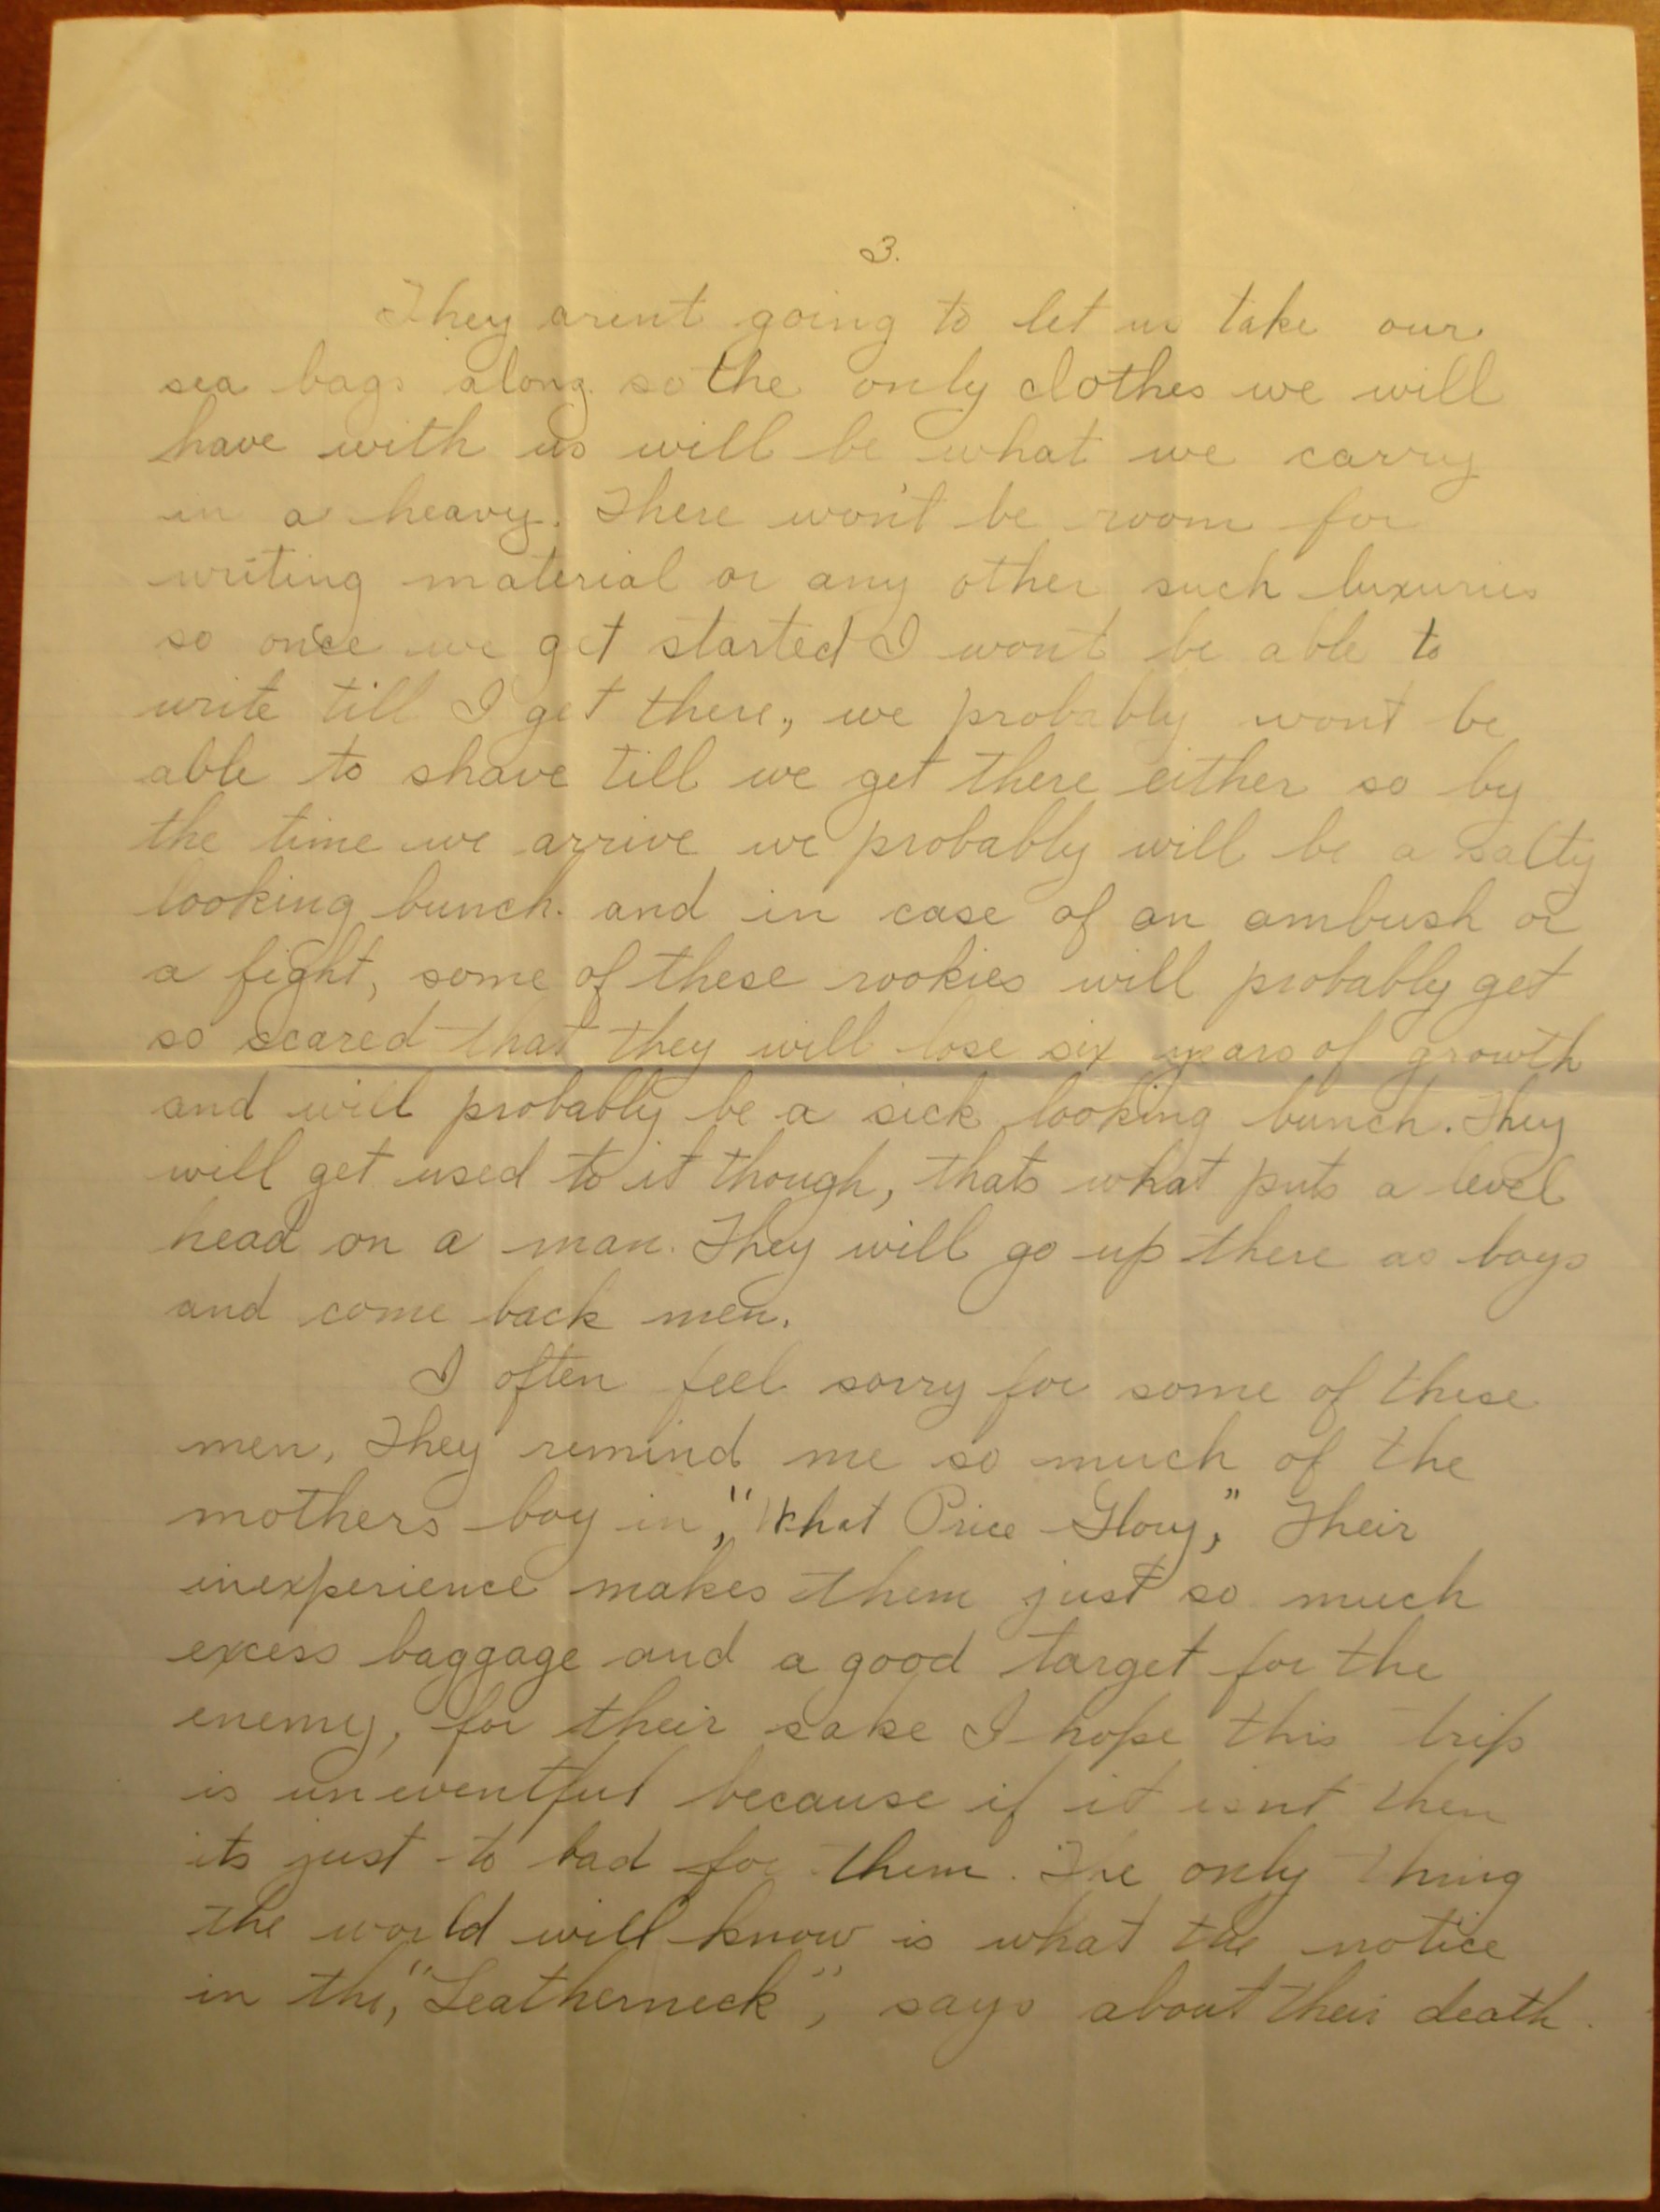 3.
They arent going to let us take our
sea bags along so the only clothes we will
have with us will be what we carry
in a heavy. There won't be room for
writing material or any other such luxuries
so once we get started I wont be able to
write till I get there, we probably wont be
able to shave till we get there either so by
the time we arrive we probably will be a salty
looking bunch. and in case of an ambush or
a fight, some of these rookies will probably get
so scared that they will lose six years of growth
and will probably be a sick looking bunch. They
will get used to it though, thats what puts a level
head on a man. They will go up there as boys
and come back men.
I often feel sorry for some of these
men, They remind me so much of the
mothers boy in, "What Price Glory," Their
inexperience makes them just so much
excess baggage and a good target for the
enemy, for their sake I hope this trip
is uneventful because if it isnt then
its just to bad for them. The only thing
the world will know is what the notice
in the, "Leatherneck", says about their death.